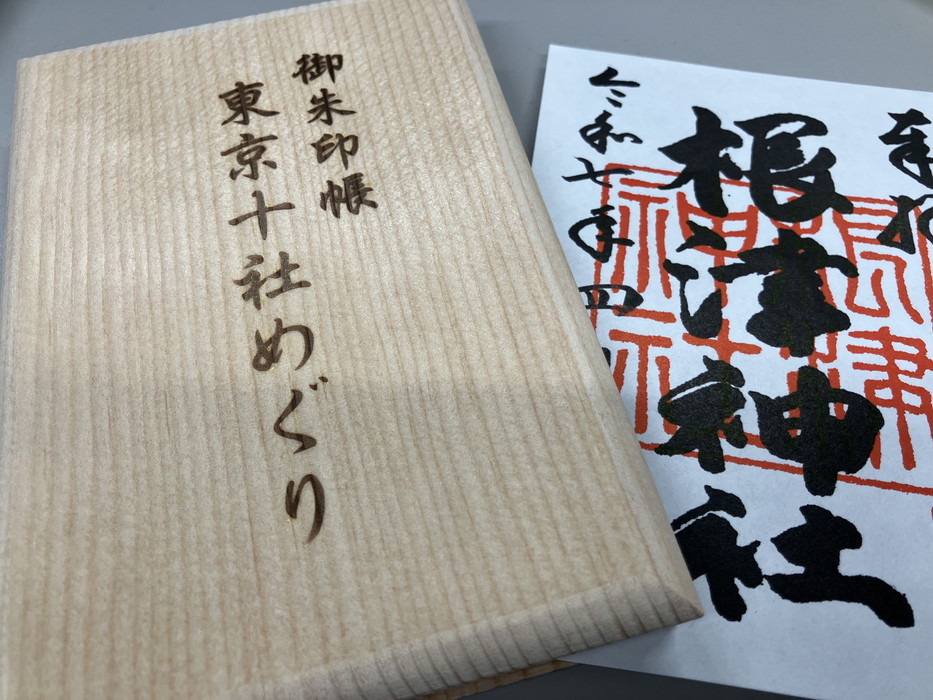 御朱印帳
東京十社めぐり
奉拝
根津神社
令和七年四
根津神社